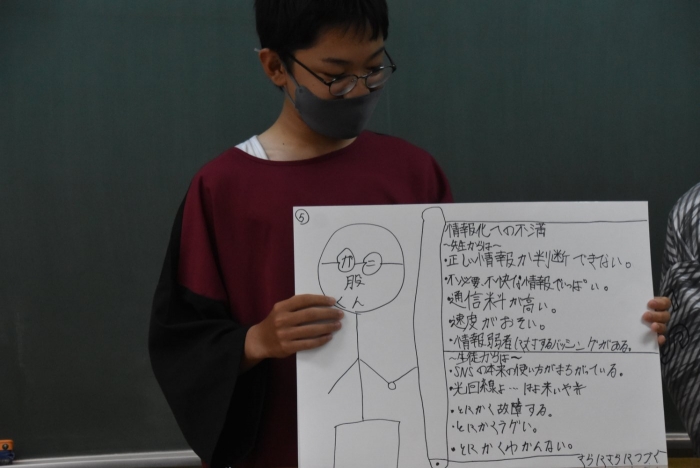 ⑤
ガニ
股
くん
情報化への不満
〜先生からは〜
・正しい情報か判断できない。
・不必要、不快な情報でいっぱい。
・通信料が高い。
・速度がおそい。
・情報弱者に対するバッシングがある。
〜生徒からは〜
・SNSの本来の使い方がまちがっている。
・光回線よ…はよ来いや
・とにかく故障する。
・とにかくラグい。
・とにかくわかんない。
さらにさらにつづく